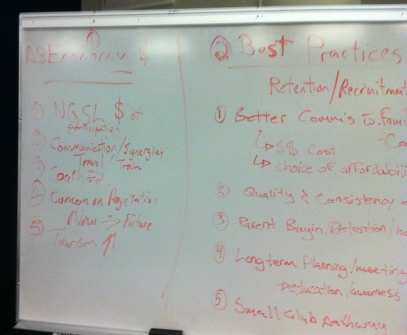 ①
$
① NGSL $ or
participation
② Communication/Synergies
Travel / Train
③ Coach Ed
④ Concern on Registration
Now → Future
⑤ Tourism ↑
② Best Practices
Retention/Recruitment
① Better Comm's w Fami
↳ $$ Cost
↳ choice of affordabili
② Quality & Consistency
③ Parent Buyin, Retention/
④ Longterm Planning/meeting
⑤ Small Club pathway